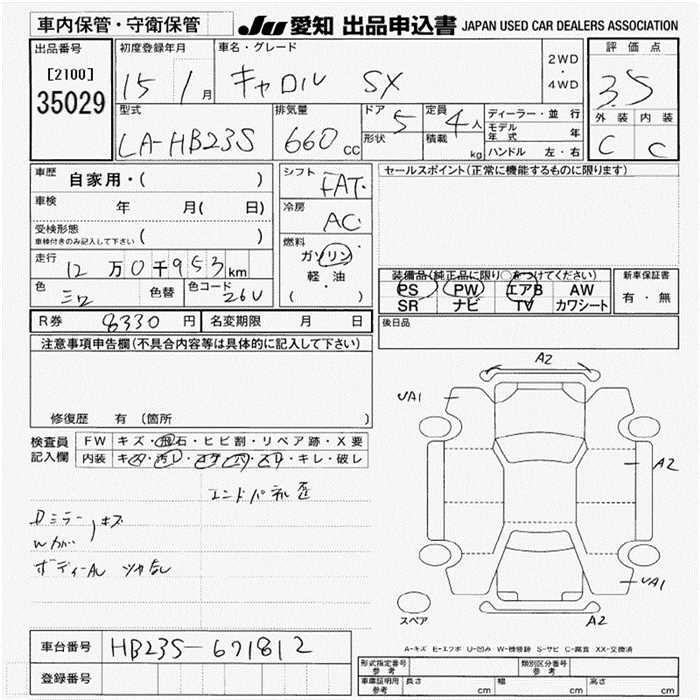 車内保管・守衛保管
JU 愛知 出品申込書 JAPAN USED CAR DEALERS ASSOCIATION
出品番号
[2100]
35029
初度登録年月
15 1 月
車名・グレード
キャロル SX
2WD
・
4WD
評価点
3.5
外装 内装
C C
型式
LA-HB23S
排気量
660 cc
ドア 5
形状
定員 4人
積載 kg
ディーラー・並行
モデル年式 年
ハンドル 左・右
車歴 自家用・( )
車検 年 月( 日)
受検形態
車検付きのみ記入して下さい ( )
走行 12万0千953km
色 色替 色コード 26U
シフト FAT
冷房 AC
燃料
ガソリン
軽・油
( )
セールスポイント(正常に機能するものに限ります)
装備品(純正品に限り○をつけてください)
PS PW エアB AW
SR ナビ TV カワシート
新車保証書
有・無
R券 8330 円 名変期限 月 日
後日品
注意事項申告欄(不具合内容等は具体的に記入して下さい)
修復歴 有 (箇所 )
検査員記入欄
FW キズ・飛石・ヒビ割・リペア跡・X要
内装 キズ・汚レ・コゲ・穴・スリ・キレ・破レ
エンドパネル歪
Dミラー
Wカバー キズ
ボディーAU ツヤ無
A2
UA1
A2
UA1
A2
スペア
A-キズ E-エクボ U-凹み W-補修跡 S-サビ C-腐食 XX-交換済
車台番号 HB23S-671812
登録番号
形式指定番号
参考
類別区分番号
参考
車庫証明用
参考
長さ cm 幅 cm 高さ cm